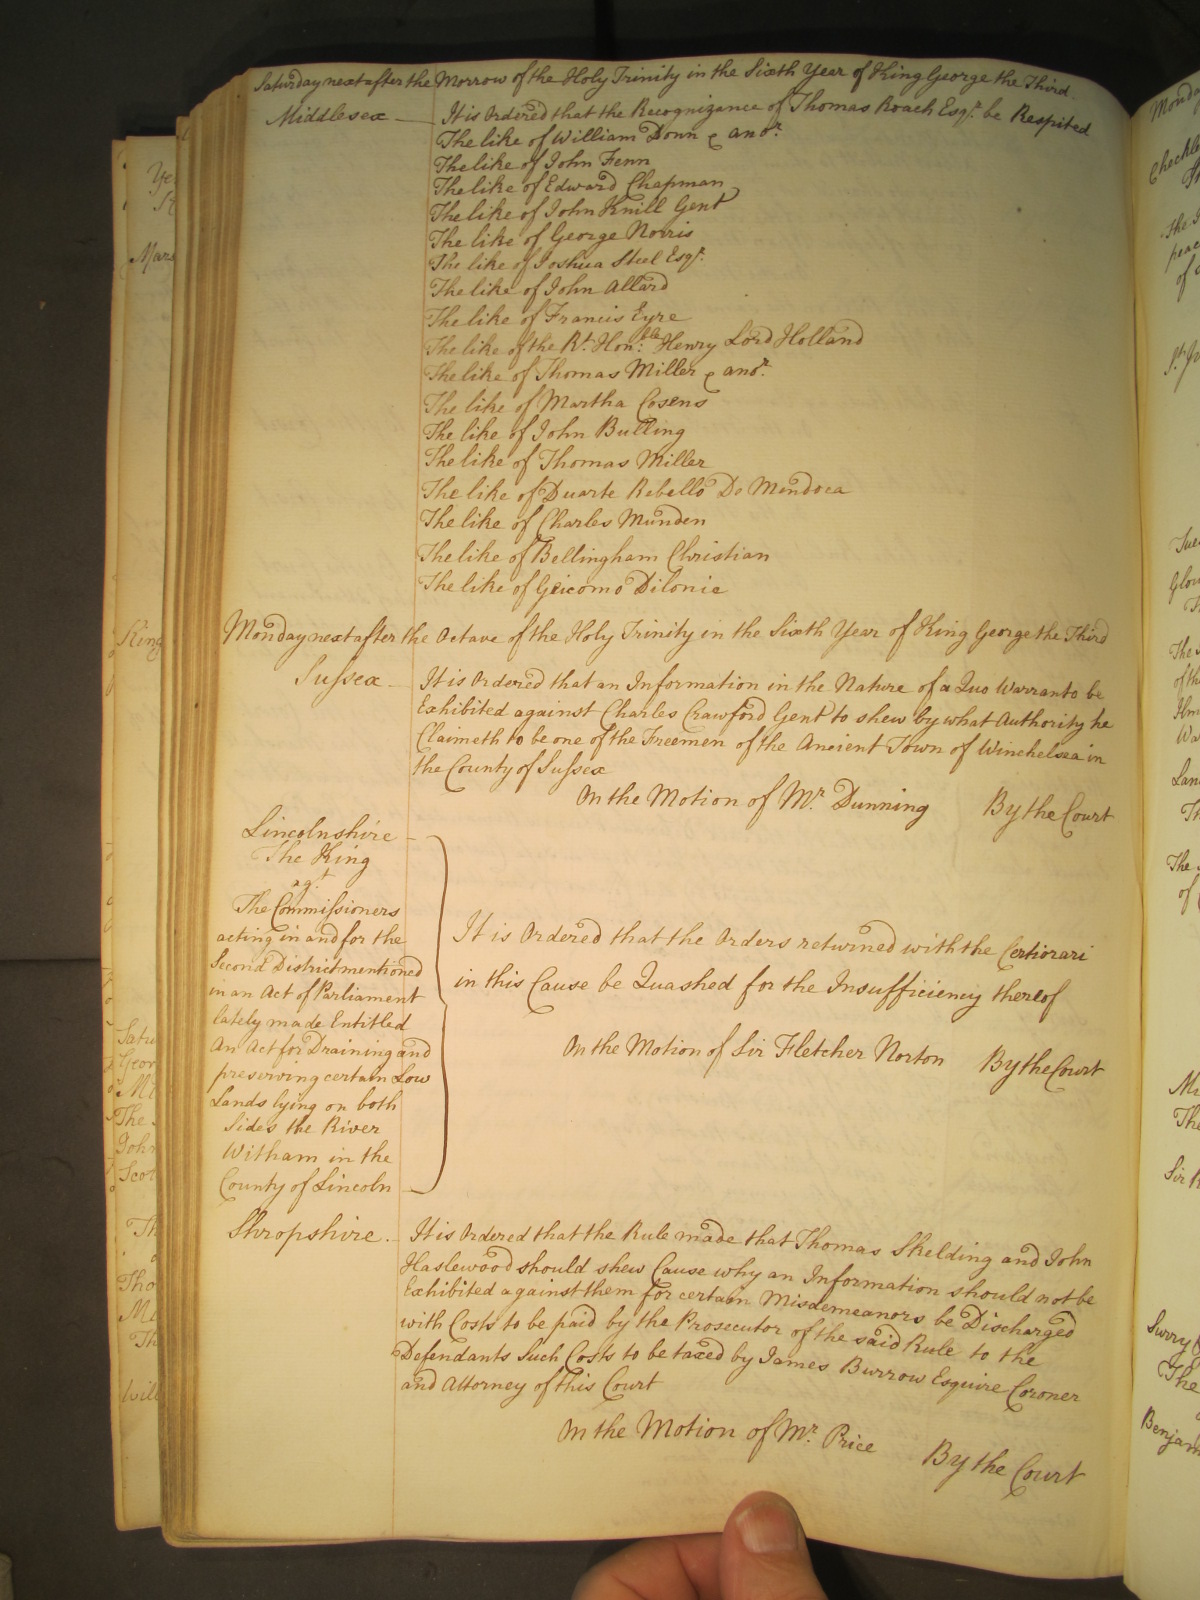 Saturday next after the Morrow of the Holy Trinity in the Sixth Year of King George the Third
Middlesex It is Ordered that the Recognizance of Thomas Roach Esqr. be Respited
The like of William Donn & anor.
The like of John Fenn
The like of Edward Chapman
The like of John Knill Gent
The like of George Norris
The like of Joshua Steel Esqr.
The like of John Allard
The like of Francis Eyre
The like of the Rt. Honble: Henry Lord Holland
The like of Thomas Miller & anor.
The like of Martha Cosens
The like of John Bulling
The like of Thomas Miller
The like of Duarte Rebello De Mendoca
The like of Charles Munden
The like of Bellingham Christian
The like of Geicomo Dilonie
Monday next after the Octave of the Holy Trinity in the Sixth Year of King George the Third
Sussex It is Ordered that an Information in the Nature of a Quo Warranto be
Exhibited against Charles Crawford Gent to shew by what Authority he
Claimeth to be one of the Freemen of the Ancient Town of Winchelsea in
the County of Sussex
On the Motion of Mr. Dunning By the Court
Lincolnshire
The King
agt
The Commissioners
acting in and for the
Second District mentioned
in an Act of Parliament
lately made Entitled
An Act for Draining and
preserving certain Low
Lands lying on both
Sides the River
Witham in the
County of Lincoln
It is Ordered that the Orders returned with the Certiorari
in this Cause be Quashed for the Insufficiency thereof
On the Motion of Sir Fletcher Norton By the Court
Shropshire. It is Ordered that the Rule made that Thomas Skelding and John
Haslewood should shew Cause why an Information should not be
Exhibited against them for certain Misdemeanors be Discharged
with Costs to be paid by the Prosecutor of the said Rule to the
Defendants Such Costs to be taxed by James Burrow Esquire Coroner
and Attorney of this Court
On the Motion of Mr. Price By the Court